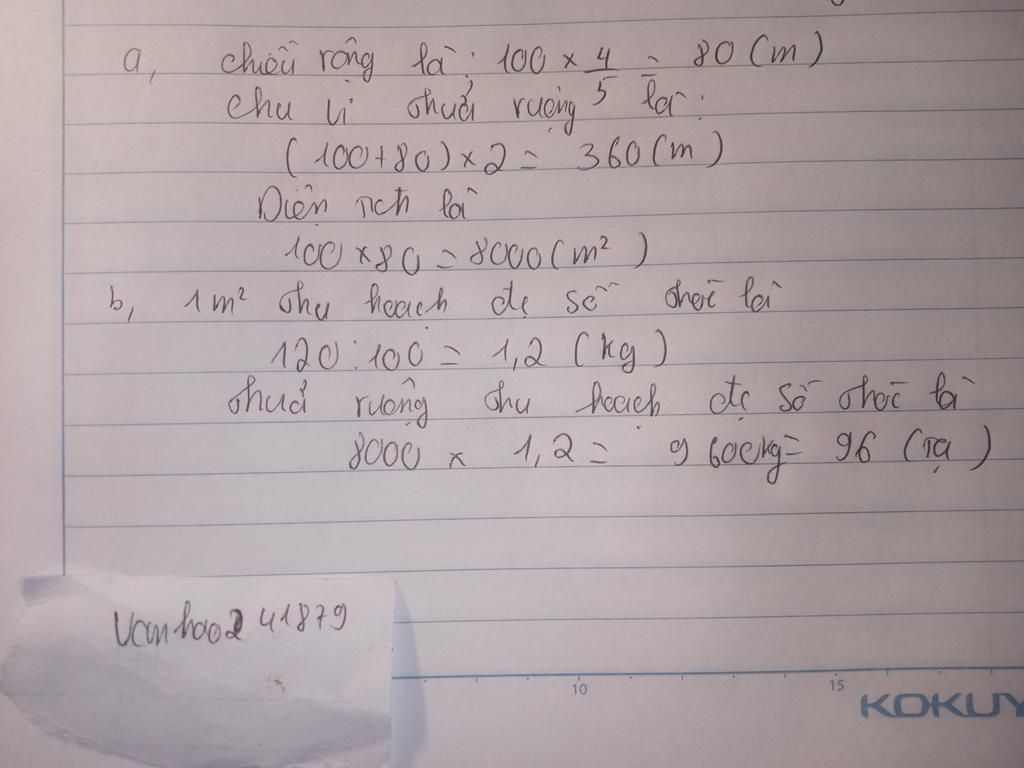 a, chiều rộng là: 100 × 4/5 = 80 (m)
chu vi thửa ruộng là:
(100+80) × 2 = 360 (m)
Diện tích là
100 × 80 = 8000 (m²)
b, 1m² thu hoạch đc số thóc là
120 : 100 = 1,2 (kg)
thửa ruộng thu hoạch đc số thóc là
8000 × 1,2 = 9 600kg = 96 (Tạ)
Vanhao241879
10 15
KOKUY